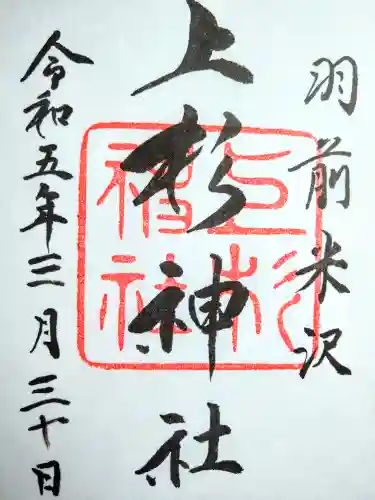 羽前米沢
上杉神社
令和五年三月三十日
上杉神社